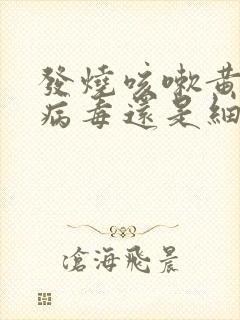 發燒咳嗽黃
病毒還是細
滄海飛晨